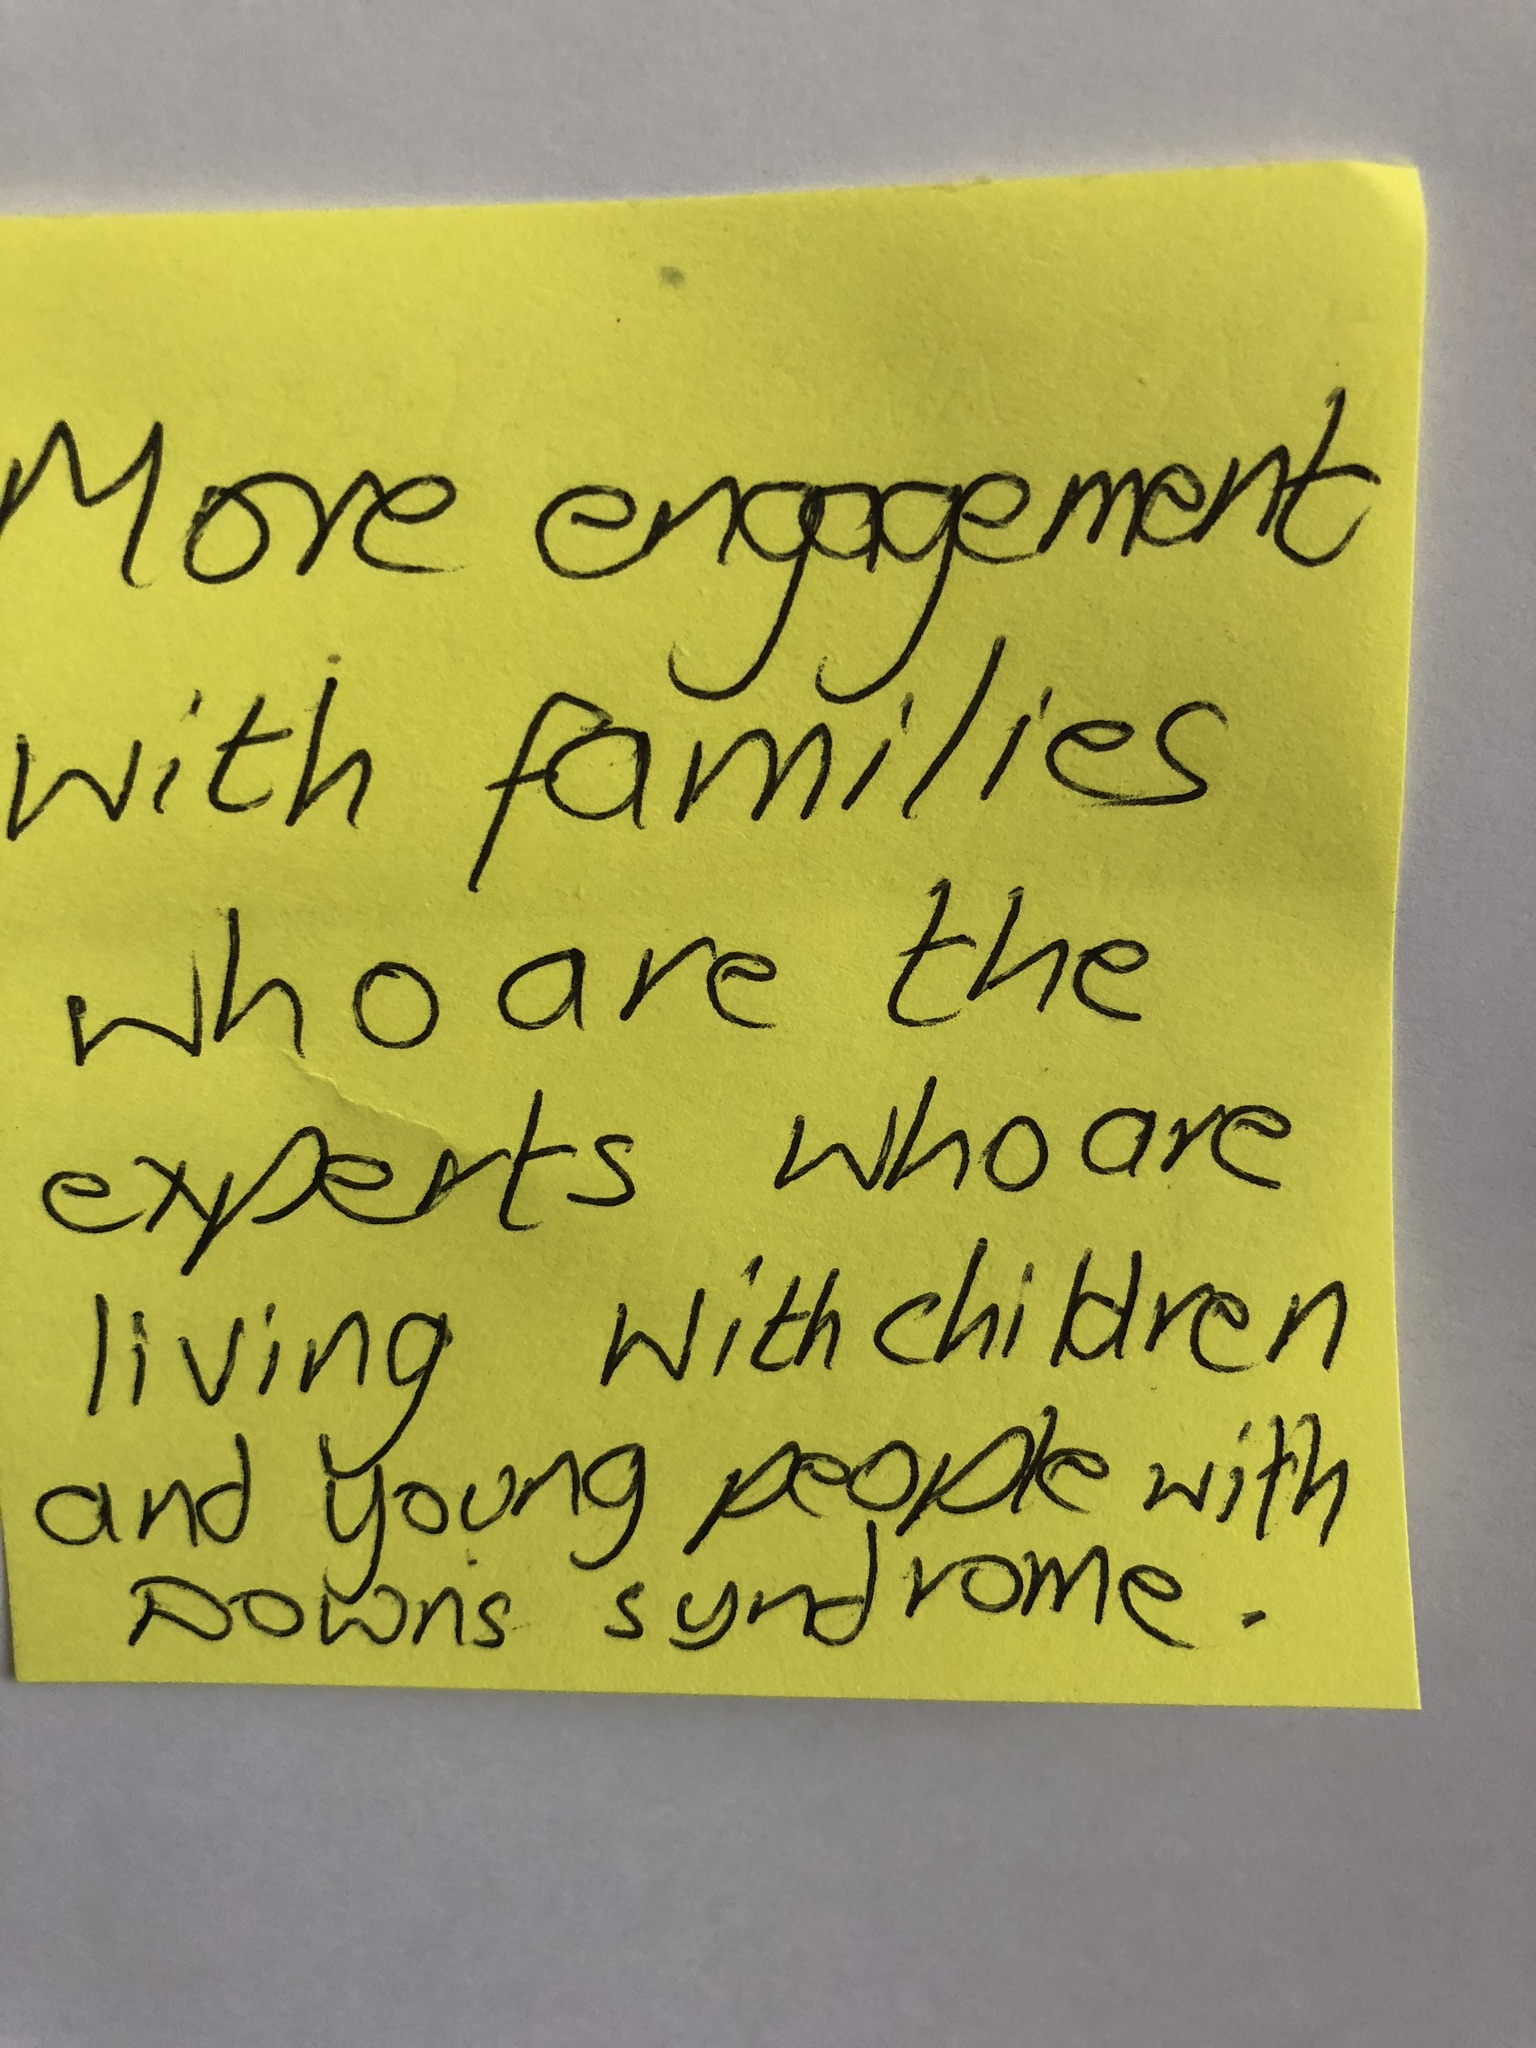 More engagement
with families
who are the
experts who are
living with children
and young people with
Downs syndrome.